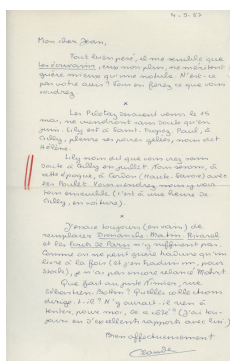 4-3-57
Mon cher Jean,
Tout bien pesé, il me semble que
les écrivains, eux non plus, ne méritent
guère mieux qu'une notule. N'est-ce
pas votre avis? Vous en ferez ce que vous
voudrez.
*
Les Pilotaz seraient venus le 15
mai, ne viendront sans doute qu'en
juin. Lily est à Saint-Tropez, Paul, à
Gilly, pleure ses poires gelées, nous dit
Hélène.
Lily nous dit que vous irez sans
doute à Gilly en juillet. Nous serons, à
cette époque, à Cordon (Haute-Savoie) avec
les Poulet. Vous viendrez nous y voir
tous ensemble (c'est à une heure de
Gilly, en voiture).
*
J'essaie toujours (en vain) de
remplacer Dimanche-Matin. Rivarol
et les
n'y suffisent pas.
Comme on ne peut guère traduire qu'un
livre à la fois (et j'en traduis un, pour
Stock), je n'ai pas encore relancé
Que fait au juste
Sébastien Bottin? Quelle collection
dirige-t-il? N'y aurait-il rien à
tenter, pour moi, de ce côté? (J'ai tou-
jours eu d'excellents rapports avec lui.)
Bien affectueusement
Claude